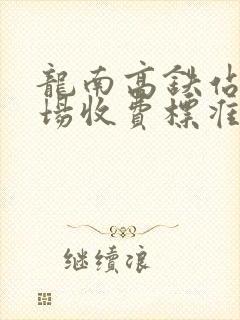 龍南高鉄站
場收費標准
继续浪